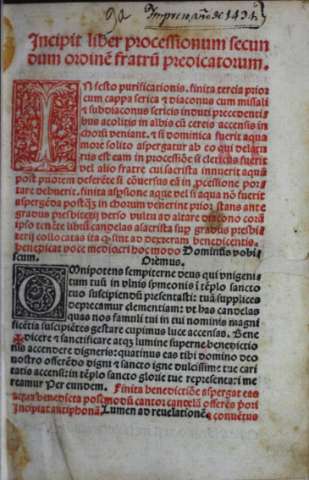 Impreso año de 1494
Incipit liber processionum secun
dum ordinē fratrū predicatorum.
IN festo purificationis. finita tercia prior
cum cappa serica & diaconus cum missali
& subdiaconus sericis induti precedentib
bus acolitis in albis cū cereis accensis in
chorū veniant. & si dominica fuerit aqua
more solito aspergatur ab eo qui delatu
rus est eam in processiōe si clericus fuerit
vel alio fratre cui sacrista innuerit aquā
post priorem deferēte si cōuersus eā in processione por
tare debuerit. finita aspsione aque vel si aqua nō fuerit
aspergēda postq̄ in chorum venerint prior stans ante
gradus presbiterij verso vultu ad altare diacono corā
ipso tenēte librū candelas a sacrista sup gradus presbi
terij collocatas ita q sint ad dexteram benedicentis.
benedicat voce mediocri hoc modo Dominus vobi
scum. Oremus.
OMnipotens sempiterne deus qui vnigeni
tum tuū in vlnis symeonis ī tēplo sancto
tuo suscipiendū presentasti: tuā supplices
deprecamur clementiam: vt has candelas
quas nos famuli tui in tui nominis magni
ficētia suscipiētes gestare cupimus luce accensas. Bene
dicere & sanctificare atqz lumine superne benedictio
nis accendere digneris: quatinus eas tibi domino deo
nostro offerēdo digni & sancto igne dulcissime tue cari
tatis accensi: in tēplo sancto glorie tue representari me
reamur Per eundem. Finita benedictiōe aspergat eas
aqua benedicta postmodū cantor candelā offerēs priori
Incipiat antiphonā. Lumen ad reuelationē. & conuētus